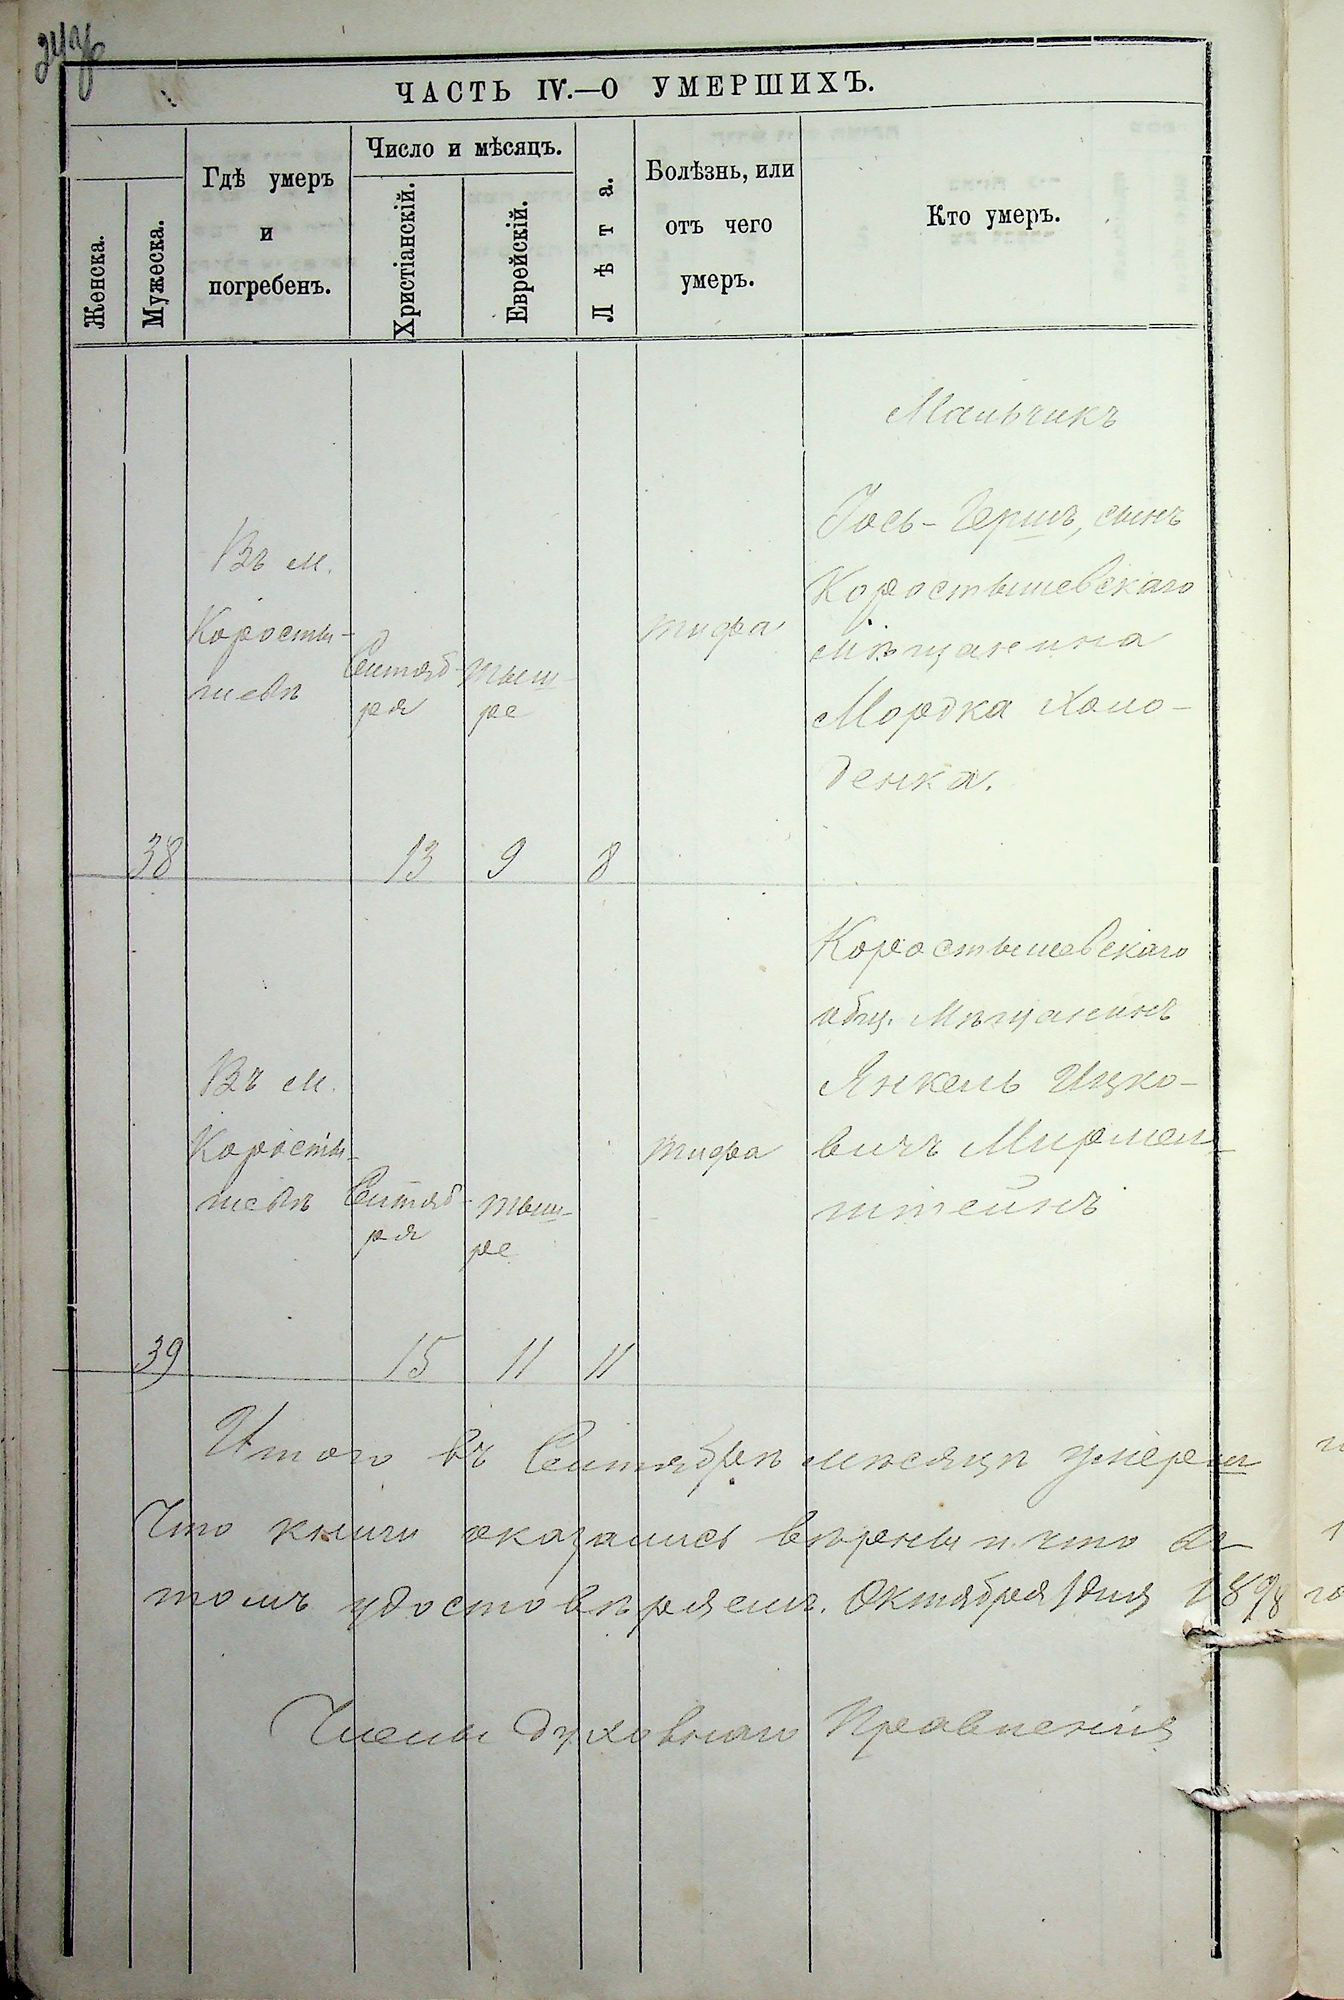 ЧАСТЬ IV.—О УМЕРШИХЪ.
Женска.
Мужеска.
Гдѣ умеръ
и
погребенъ.
Число и мѣсяцъ.
Христіанскій.
Еврейскій.
Лѣта.
Болѣзнь, или
отъ чего
умеръ.
Кто умеръ.
38
Въ м.
Коросты-
шевѣ
Сентяб-
ря
13
Тыш-
ре
9
8
тифа
Мальчикъ
Іось-Гершъ, сынъ
Коростышевскаго
мѣщанина
Мордка Холо-
денка.
39
Въ м.
Коросты-
шевѣ
Сентяб-
ря
15
Тыш-
ре
11
11
тифа
Коростышевскаго
общ. Мѣщанинъ
Янкель Ицко-
вичъ Мирмел-
штейнъ
Итого въ Сентябрѣ мѣсяцѣ умерш
Что книги оказались вѣрны и что
томъ удостовѣряемъ. Октября 1 дня 1898
Члены Духовнаго Правленія